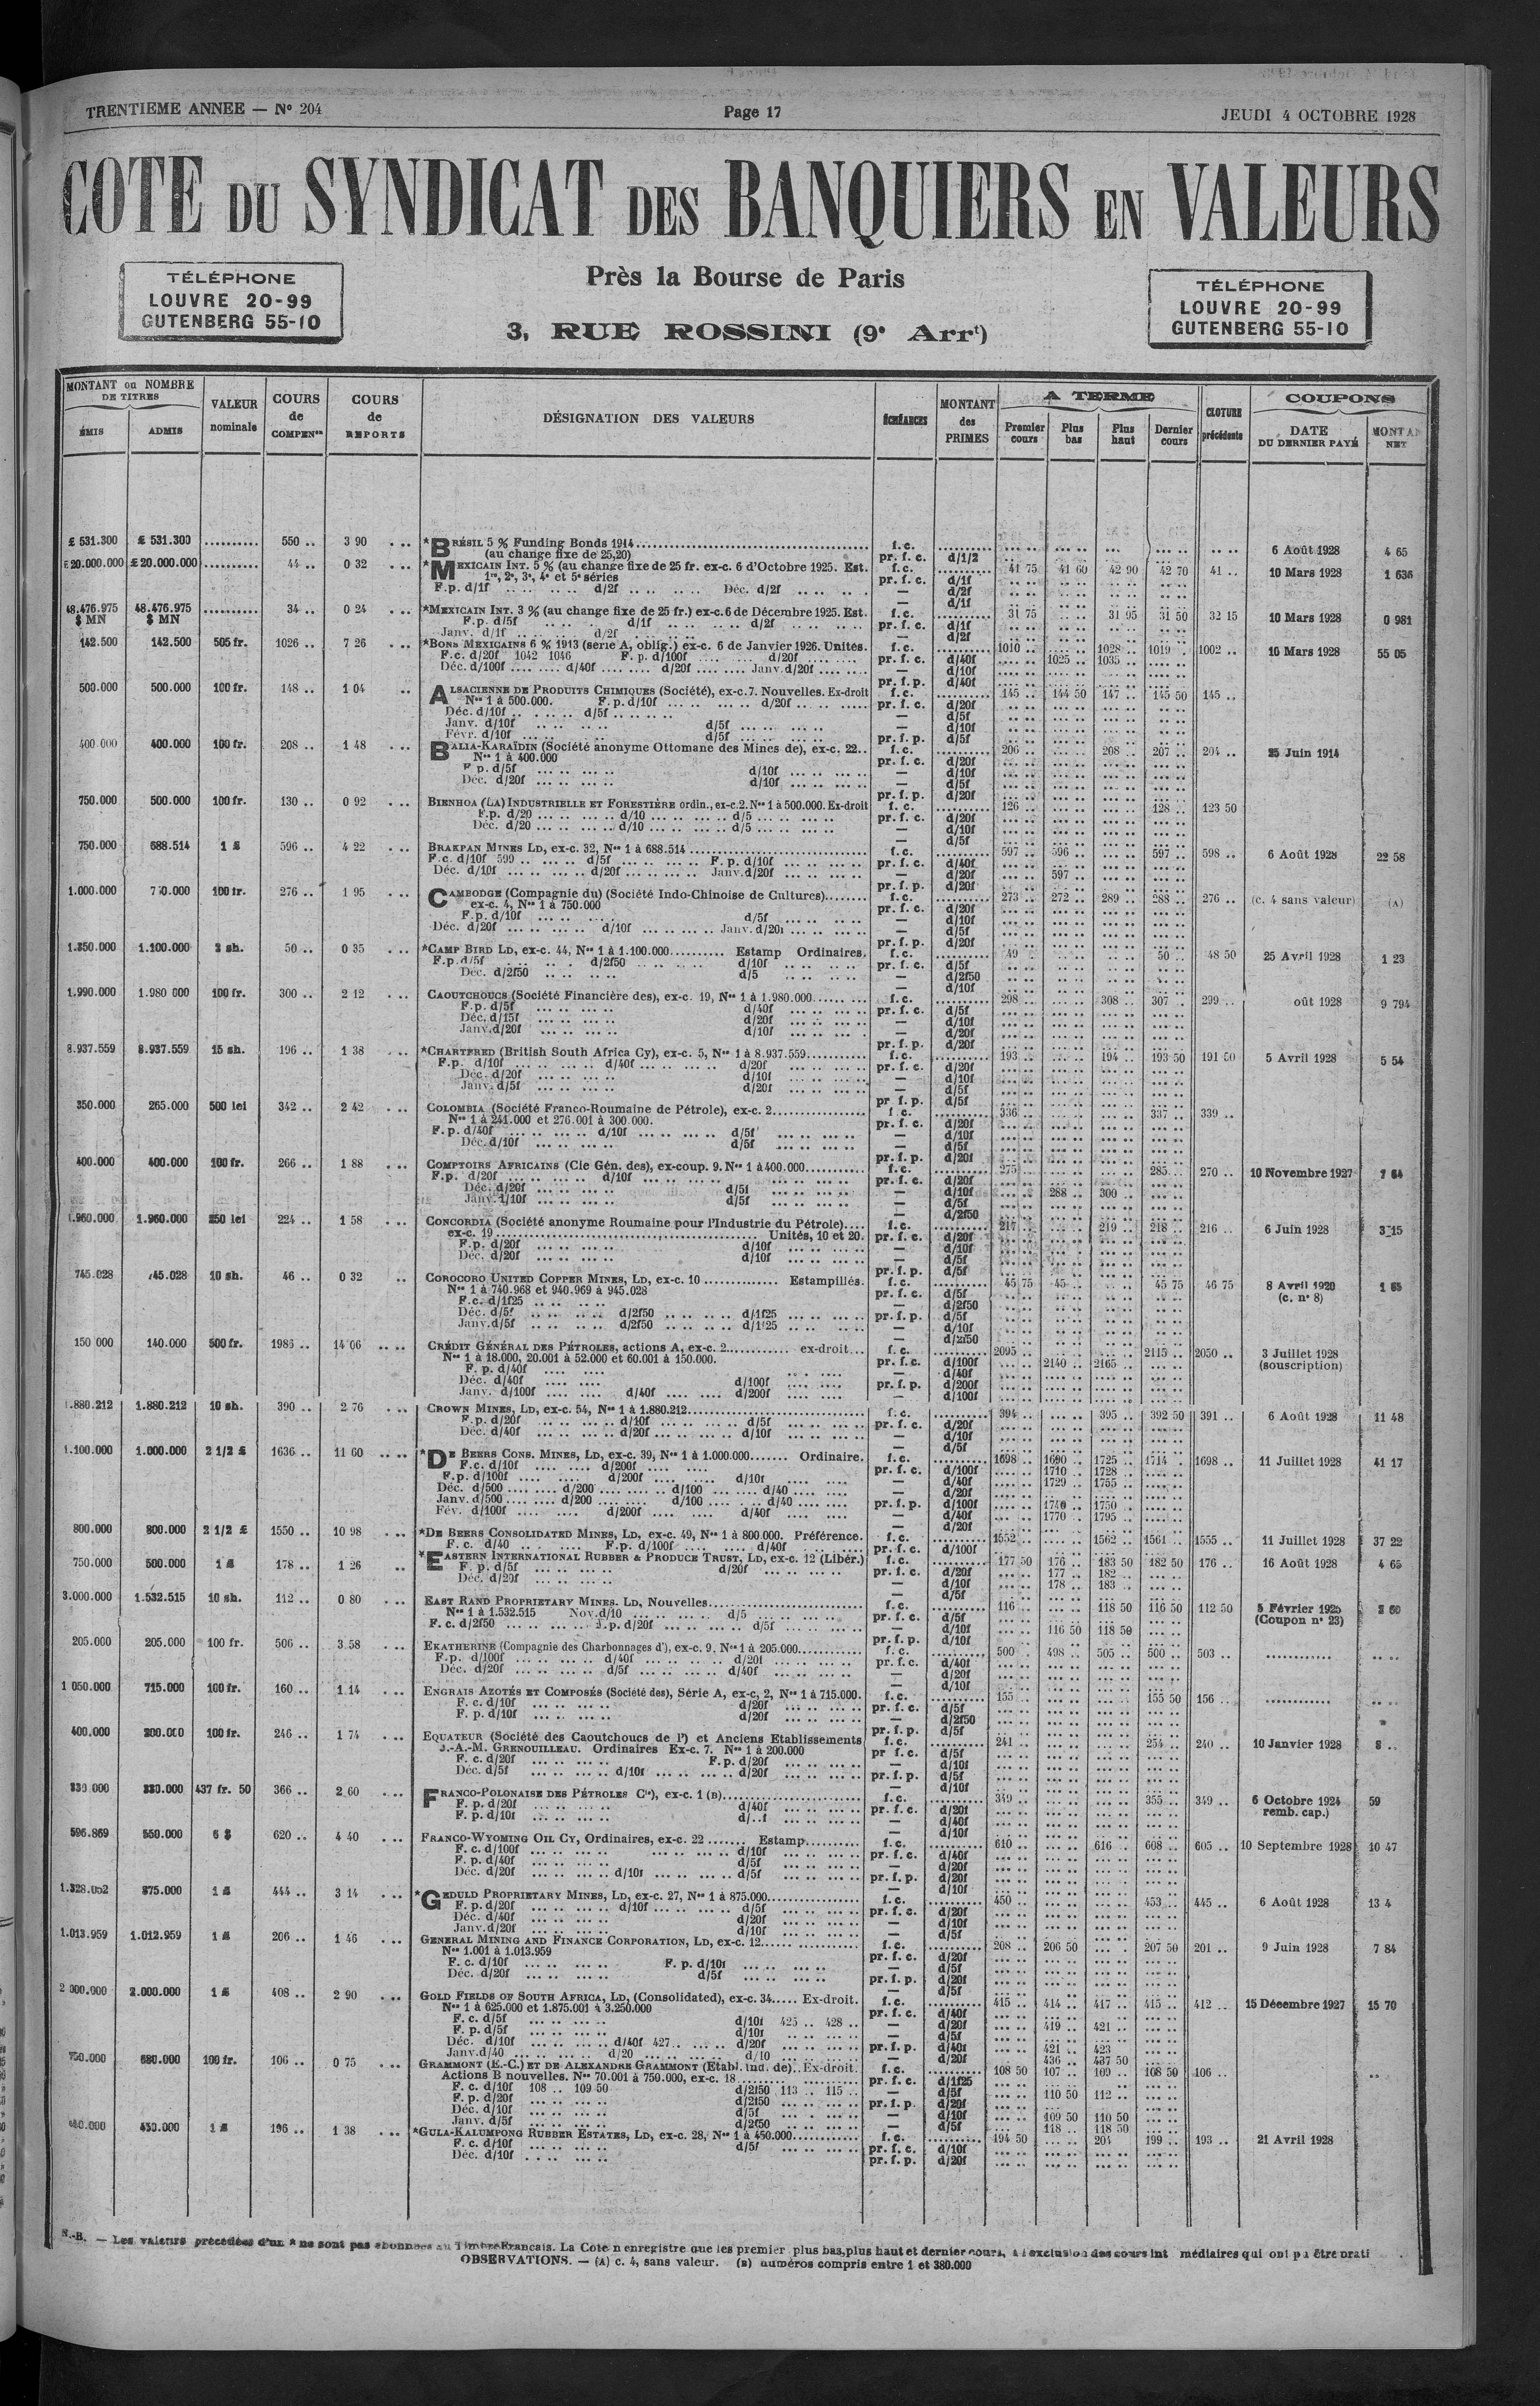 TRENTIEME ANNEE — N° 204
Page 17
JEUDI 4 OCTOBRE 1928
COTE DU SYNDICAT DES BANQUIERS EN VALEURS
TÉLÉPHONE
LOUVRE 20-99
GUTENBERG 55-10
Près la Bourse de Paris
3, RUE ROSSINI (9e Arrt)
TÉLÉPHONE
LOUVRE 20-99
GUTENBERG 55-10
MONTANT ou NOMBRE DE TITRES
ÉMIS
ADMIS
VALEUR nominale
COURS de COMPENon
COURS de REPORTS
DÉSIGNATION DES VALEURS
ÉCHÉANCES
MONTANT des PRIMES
A TERME
Premier cours
Plus bas
Plus haut
Dernier cours
CLOTURE précédente
COUPONS
DATE DU DERNIER PAYÉ
NET
£ 531.300 £ 531.300 .......... 550 .. 3 90 *BRÉSIL 5 % Funding Bonds 1914 f. c. 6 Août 1928 4 65
(au change fixe de 25,20) pr. f. c. d/1/2
£20.000.000 £20.000.000 .......... 44 .. 0 32 *MEXICAIN INT. 5 % (au change fixe de 25 fr. ex-c. 6 d'Octobre 1925. Est. f.c. 41 75 41 60 42 90 42 70 41 .. 10 Mars 1928 1 636
1re, 2e, 3e, 4e et 5e séries pr. f. c. d/1f
F.p. d/1f d/2f Déc. d/2f — d/2f
48.476.975 $ MN 48.476.975 $ MN .......... 34 .. 0 24 *MEXICAIN INT. 3 % (au change fixe de 25 fr.) ex-c. 6 de Décembre 1925. Est. f.c. 31 75 31 95 31 50 32 15 10 Mars 1928 0 981
F.p. d/5f d/1f d/2f pr. f. c. d/1f
Janv. d/1f d/2f — d/2f
142.500 142.500 505 fr. 1026 .. 7 26 *BONS MEXICAINS 6 % 1913 (série A, oblig.) ex-c. 6 de Janvier 1926. Unités. f. c. 1010 .. 1028 .. 1019 .. 1002 .. 10 Mars 1928 55 05
F.c. d/20f 1042 1046 F. p. d/100f d/20f pr. f. c. d/40f 1025 .. 1035 ..
Déc. d/100f d/40f d/20f Janv. d/20f — d/10f
pr. f. p. d/40f
500.000 500.000 100 fr. 148 .. 1 04 ALSACIENNE DE PRODUITS CHIMIQUES (Société), ex-c.7. Nouvelles. Ex-droit f. c. 145 .. 144 50 147 .. 145 50 145 ..
Nos 1 à 500.000. F. p. d/10f d/20f pr. f. c. d/20f
Déc. d/10f d/5f — d/5f
Janv. d/10f d/5f — d/10f
Févr. d/10f d/5f pr. f. p. d/5f
400.000 400.000 100 fr. 208 .. 1 48 BALIA-KARAÏDIN (Société anonyme Ottomane des Mines de), ex-c. 22.. f. c. 206 .. 208 .. 207 .. 204 .. 25 Juin 1914
Nos 1 à 400.000 pr. f. c. d/20f
F. p. d/5f d/10f — d/10f
Déc. d/20f d/10f — d/5f
pr. f. p. d/20f
750.000 500.000 100 fr. 130 .. 0 92 BIENHOA (LA) INDUSTRIELLE ET FORESTIÈRE ordin., ex-c.2. Nos 1 à 500.000. Ex-droit f. c. 126 .. 128 .. 123 50
F.p. d/20 d/10 d/5 pr. f. c. d/20f
Déc. d/20 d/10 d/5 — d/10f
— d/5f
750.000 688.514 1 £ 596 .. 4 22 BRAKPAN MINES LD, ex-c. 32, Nos 1 à 688.514 f. c. 597 .. 596 .. 597 .. 598 .. 6 Août 1928 22 58
F.c. d/10f 599 .. d/5f F. p. d/10f pr. f. c. d/40f
Déc. d/10f d/20f Janv. d/20f — d/20f 597 ..
pr. f. p. d/20f
1.000.000 100 fr. 276 .. 1 95 CAMBODGE (Compagnie du) (Société Indo-Chinoise de Cultures) f. c. 273 .. 272 .. 289 .. 288 .. 276 .. (c. 4 sans valeur) (A)
ex-c. 4, Nos 1 à 750.000 pr. f. c. d/20f
F.p. d/10f d/5f — d/10f
Déc. d/20f d/10f Janv. d/20f — d/5f
pr. f. p. d/20f
1.350.000 1.100.000 2 sh. 50 .. 0 35 *CAMP BIRD LD, ex-c. 44, Nos 1 à 1.100.000 Estamp Ordinaires. f. c. 49 .. 50 .. 48 50 25 Avril 1928 1 23
F.p. d/5f d/2f50 d/10f pr. f. c. d/5f
Déc. d/2f50 d/5 — d/2f50
— d/10f
1.990.000 1.980 000 100 fr. 300 .. 2 12 CAOUTCHOUCS (Société Financière des), ex-c. 19, Nos 1 à 1.980.000 f. c. 298 .. 308 .. 307 .. 299 .. oût 1928 9 794
F.p. d/5f d/40f pr. f. c. d/5f
Déc. d/15f d/20f — d/10f
Janv. d/20f d/10f — d/20f
pr. f. p. d/20f
8.937.559 8.937.559 15 sh. 196 .. 1 38 *CHARTERED (British South Africa Cy), ex-c. 5, Nos 1 à 8.937.559 f. c. 193 .. 194 .. 193 50 191 50 5 Avril 1928 5 54
F.p. d/10f d/40f d/20f pr. f. c. d/20f
Déc. d/20f d/10f — d/10f
Janv. d/5f d/20f — d/5f
pr. f. p. d/5f
350.000 265.000 500 lei 342 .. 2 42 COLOMBIA (Société Franco-Roumaine de Pétrole), ex-c. 2 f. c. 336 .. 337 .. 339 ..
Nos 1 à 241.000 et 276.001 à 300.000. pr. f. c. d/20f
F. p. d/40f d/10f d/5f — d/10f
Déc. d/10f d/5f — d/5f
pr. f. p. d/20f
400.000 400.000 100 fr. 266 .. 1 88 COMPTOIRS AFRICAINS (Cie Gén. des), ex-coup. 9. Nos 1 à 400.000 f. c. 275 .. 285 .. 270 .. 10 Novembre 1927 7 64
F.p. d/20f d/10f pr. f. c. d/20f
Déc. d/20f d/5f — d/10f 288 .. 300 ..
Janv. d/10f d/5f — d/5f
— d/2f50
1.960.000 1.960.000 250 lei 224 .. 1 58 CONCORDIA (Société anonyme Roumaine pour l'Industrie du Pétrole) f. c. 217 .. 219 .. 218 .. 216 .. 6 Juin 1928 3 15
ex-c. 19 Unités, 10 et 20. pr. f. c. d/20f
F.p. d/20f d/10f — d/10f
Déc. d/20f d/10f — d/5f
pr. f. p. d/5f
745.028 745.028 10 sh. 46 .. 0 32 COROCORO UNITED COPPER MINES, LD, ex-c. 10 Estampillés. f. c. 45 75 45 .. 45 75 46 75 8 Avril 1920 1 65
Nos 1 à 740.968 et 940.969 à 945.028 pr. f. c. d/5f (c. n° 8)
F.c. d/1f25 — d/2f50
Déc. d/5f d/2f50 d/1f25 pr. f. p. d/5f
Janv. d/5f d/2f50 d/1f25 — d/10f
— d/2f50
150 000 140.000 500 fr. 1986 .. 14 06 CRÉDIT GÉNÉRAL DES PÉTROLES, actions A, ex-c. 2 ex-droit f. c. 2095 .. 2115 .. 2050 .. 3 Juillet 1928
Nos 1 à 18.000, 20.001 à 52.000 et 60.001 à 150.000. pr. f. c. d/100f 2140 .. 2165 .. (souscription)
F. p. d/40f — d/40f
Déc. d/40f d/100f pr. f. p. d/200f
Janv. d/100f d/40f d/200f — d/100f
1.880.212 1.880.212 10 sh. 390 .. 2 76 CROWN MINES, LD, ex-c. 54, Nos 1 à 1.880.212 f. c. 394 .. 395 .. 392 50 391 .. 6 Août 1928 11 48
F.p. d/20f d/10f d/5f pr. f. c. d/20f
Déc. d/40f d/20f d/10f — d/10f
— d/5f
1.100.000 1.000.000 2 1/2 £ 1636 .. 11 60 *DE BEERS CONS. MINES, LD, ex-c. 39, Nos 1 à 1.000.000 Ordinaire. f. c. 1698 .. 1690 .. 1725 .. 1714 .. 1698 .. 11 Juillet 1928 41 17
F.c. d/10f d/200f pr. f. c. d/100f 1710 .. 1728 ..
F.p. d/100f d/200f d/10f — d/40f 1729 .. 1755 ..
Déc. d/500 d/200 d/100 d/40 — d/20f
Janv. d/500 d/200 d/100 d/40 pr. f. p. d/100f 1740 .. 1750 ..
Fév. d/100f d/200f d/40f — d/40f 1770 .. 1795 ..
— d/20f
800.000 800.000 2 1/2 £ 1550 .. 10 98 *DE BEERS CONSOLIDATED MINES, LD, ex-c. 49, Nos 1 à 800.000. Préférence. f. c. 1552 .. 1562 .. 1561 .. 1555 .. 11 Juillet 1928 37 22
F. c. d/40 F.p. d/100f d/40f pr. f. c. d/100f
750.000 500.000 1 £ 178 .. 1 26 *EASTERN INTERNATIONAL RUBBER & PRODUCE TRUST, LD, ex-c. 12 (Libér.) f. c. 177 50 176 .. 183 50 182 50 176 .. 16 Août 1928 4 65
F. p. d/5f d/20f pr. f. c. d/20f 177 .. 182 ..
Déc. d/20f — d/10f 178 .. 183 ..
— d/5f
3.000.000 1.532.515 10 sh. 112 .. 0 80 EAST RAND PROPRIETARY MINES. LD, Nouvelles f. c. 116 .. 118 50 116 50 112 50 5 Février 1925
Nos 1 à 1.532.515 Nov. d/10 d/5 pr. f. c. d/5f (Coupon n° 23)
F. c. d/2f50 F.p. d/20f d/5f — d/10f 116 50 118 50
pr. f. p. d/10f
205.000 205.000 100 fr. 506 .. 3 58 EKATHERINE (Compagnie des Charbonnages d'), ex-c. 9, Nos 1 à 205.000 f. c. 500 .. 498 .. 505 .. 500 .. 503 ..
F.p. d/100f d/40f d/20f pr. f. c. d/40f
Déc. d/20f d/5f d/40f — d/20f
— d/10f
1 050.000 715.000 100 fr. 160 .. 1 14 ENGRAIS AZOTÉS ET COMPOSÉS (Société des), Série A, ex-c, 2, Nos 1 à 715.000. f. c. 155 .. 155 50 156 ..
F. c. d/10f d/20f pr. f. c. d/5f
F. p. d/10f d/20f — d/2f50
pr. f. p. d/5f
400.000 200.000 100 fr. 246 .. 1 74 EQUATEUR (Société des Caoutchoucs de l') et Anciens Etablissements f. c. 241 .. 254 .. 240 .. 10 Janvier 1928 8 ..
J.-A.-M. GRENOUILLEAU. Ordinaires Ex-c. 7. Nos 1 à 200.000 pr f. c. d/5f
F. c. d/20f F. p. d/20f — d/10f
Déc. d/5f d/10f d/20f pr. f. p. d/5f
— d/10f
330.000 437 fr. 50 366 .. 2 60 FRANCO-POLONAISE DES PÉTROLES Cie), ex-c. 1 (B) f. c. 349 .. 355 .. 349 .. 6 Octobre 1924 59
F. p. d/20f d/40f pr. f. c. d/20f remb. cap.)
F. p. d/10f d/..f — d/40f
— d/10f
596.869 550.000 6 $ 620 .. 4 40 FRANCO-WYOMING OIL CY, Ordinaires, ex-c. 22 Estamp. f. c. 610 .. 616 .. 608 .. 605 .. 10 Septembre 1928 10 47
F. c. d/100f d/10f pr. f. c. d/40f
F. p. d/40f d/5f — d/20f
Déc. d/20f d/10f d/5f pr. f. p. d/20f
— d/10f
1.328.052 875.000 1 £ 444 .. 3 14 *GEDULD PROPRIETARY MINES, LD, ex-c. 27, Nos 1 à 875.000 f. c. 450 .. 453 .. 445 .. 6 Août 1928 13 4
F. p. d/20f d/10f d/5f pr. f. c. d/20f
Déc. d/40f d/20f — d/10f
Janv. d/20f d/10f — d/5f
1.013.959 1.012.959 1 £ 206 .. 1 46 GENERAL MINING AND FINANCE CORPORATION, LD, ex-c. 12 f. c. 208 .. 206 50 207 50 201 .. 9 Juin 1928 7 84
Nos 1.001 à 1.013.959 pr. f. c. d/20f
F. c. d/10f F. p. d/10f — d/5f
Déc. d/20f d/5f pr. f. p. d/20f
— d/5f
2 000.000 2.000.000 1 £ 408 .. 2 90 GOLD FIELDS OF SOUTH AFRICA, LD, (Consolidated), ex-c. 34 Ex-droit. f. c. 415 .. 414 .. 417 .. 415 .. 412 .. 15 Décembre 1927 15 70
Nos 1 à 625.000 et 1.875.001 à 3.250.000 pr. f. c. d/40f
F. c. d/5f d/10f 425 .. 428 .. — d/20f 419 .. 421 ..
F. p. d/5f d/10f — d/5f
Déc. d/10f d/40f 427 .. d/20f pr. f. p. d/40f 421 .. 423
Janv. d/40 d/20 d/10 — d/20f 436 .. 437 50
750.000 680.000 100 fr. 106 .. 0 75 GRAMMONT (E.-C.) ET DE ALEXANDRE GRAMMONT (Etabl. ind. de). Ex-droit. f. c. 108 50 107 .. 109 .. 108 50 106 ..
Actions B nouvelles. Nos 70.001 à 750.000, ex-c. 18 pr. f. c. d/1f25
F. c. d/10f 108 .. 109 50 d/2f50 113 .. 115 .. — d/5f 110 50 112 ..
F. p. d/20f d/2f50 pr. f. p. d/20f
Déc. d/10f d/5f — d/10f 109 50 110 50
Janv. d/5f d/2f50 — d/5f 118 .. 118 50
450.000 1 £ 196 .. 1 38 *GULA-KALUMPONG RUBBER ESTATES, LD, ex-c. 28, Nos 1 à 450.000 f. c. 194 50 204 199 .. 193 .. 21 Avril 1928
F. c. d/10f d/5f pr. f. c. d/10f
Déc. d/10f pr. f. p. d/20f
N.-B. — Les valeurs précédées d'un * ne sont pas abonnées au Timbre Français. La Cote n enregistre que les premier plus bas, plus haut et dernier cours, à l'exclusion des cours int médiaires qui ont pu être prati
OBSERVATIONS. — (A) c. 4, sans valeur. (B) numéros compris entre 1 et 380.000